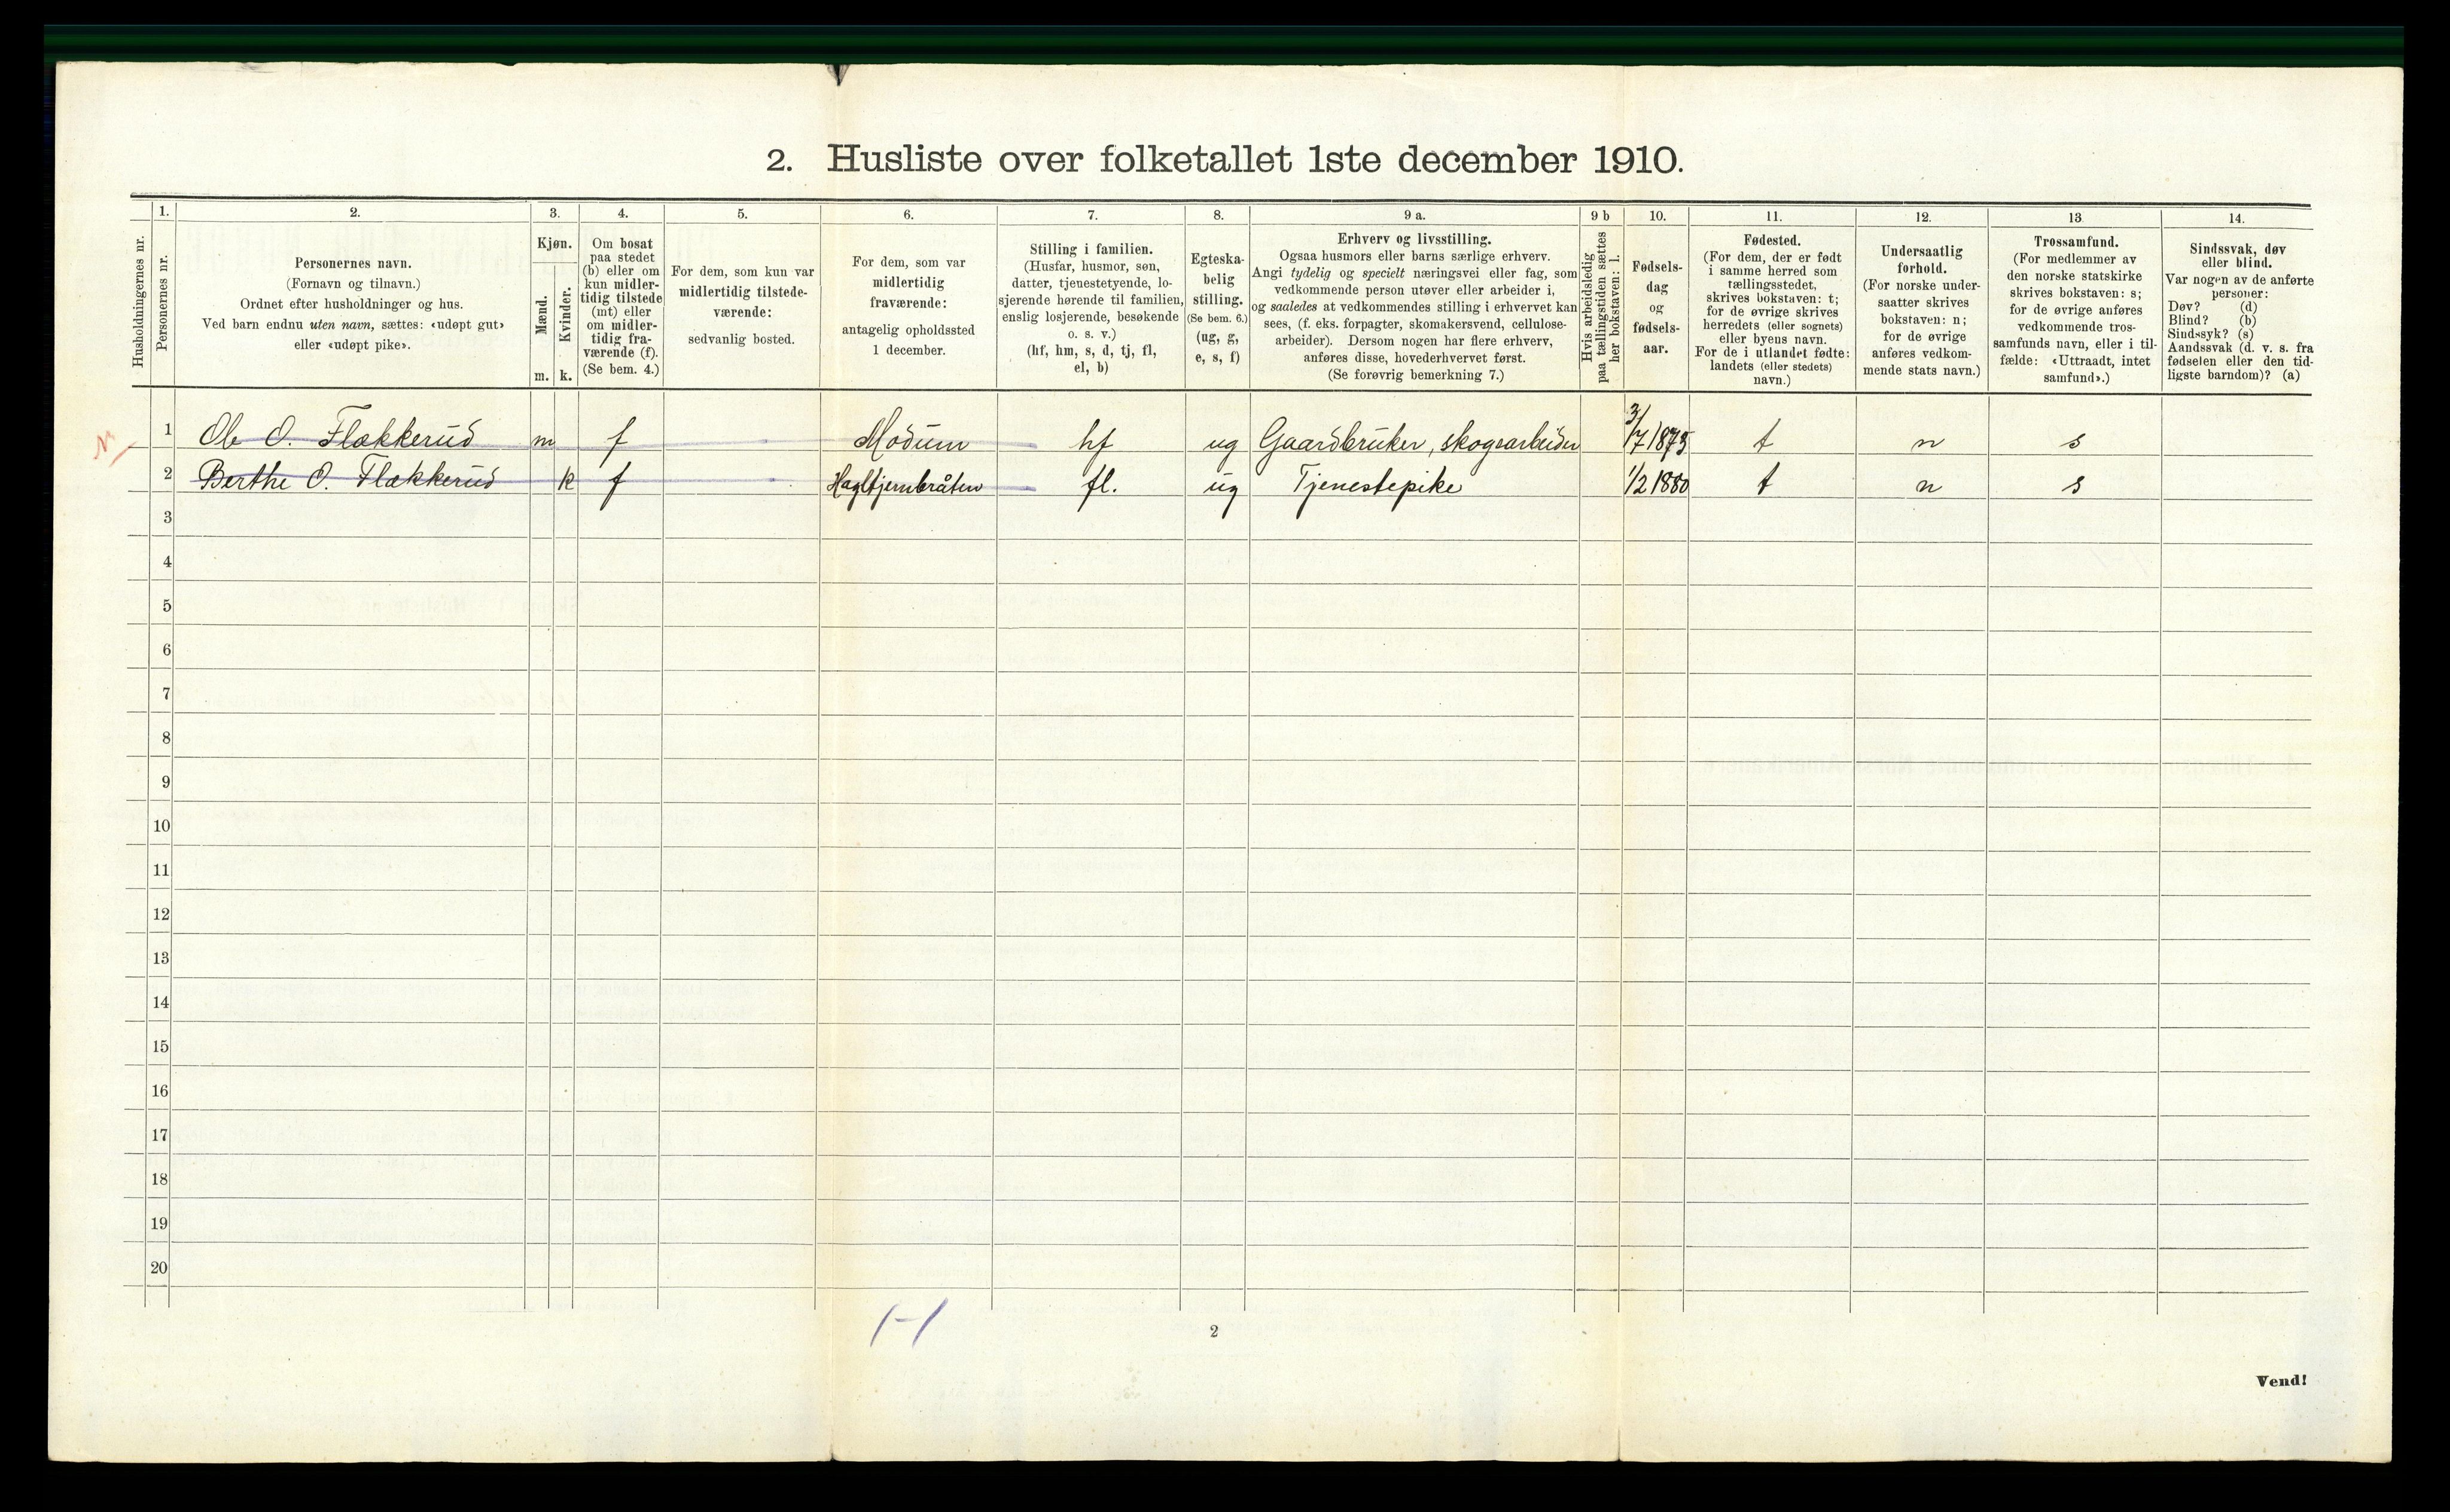 2. Husliste over folketallet 1ste december 1910.
Husholdningernes nr.
1.
Personernes nr.
2.
Personernes navn.
(Fornavn og tilnavn.)
Ordnet efter husholdninger og hus.
Ved barn endnu uten navn, sættes: «udøpt gut»
eller «udøpt pike».
3.
Kjøn.
Mænd.
m.
Kvinder.
k.
4.
Om bosat
paa stedet
(b) eller om
kun midler-
tidig tilstede
(mt) eller
om midler-
tidig fra-
værende (f).
(Se bem. 4.)
5.
For dem, som kun var
midlertidig tilstede-
værende:
sedvanlig bosted.
6.
For dem, som var
midlertidig
fraværende:
antagelig opholdssted
1 december.
7.
Stilling i familien.
(Husfar, husmor, søn,
datter, tjenestetyende, lo-
sjerende hørende til familien,
enslig losjerende, besøkende
o. s. v.)
(hf, hm, s, d, tj, fl,
el, b)
8.
Egteska-
belig
stilling.
(Se bem. 6.)
(ug, g,
e, s, f)
9 a.
Erhverv og livsstilling.
Ogsaa husmors eller barns særlige erhverv.
Angi tydelig og specielt næringsvei eller fag, som
vedkommende person utøver eller arbeider i,
og saaledes at vedkommendes stilling i erhvervet kan
sees, (f. eks. forpagter, skomakersvend, cellulose-
arbeider). Dersom nogen har flere erhverv,
anføres disse, hovederhvervet først.
(Se forøvrig bemerkning 7.)
9 b
Hvis arbeidsledig
paa tællingstiden sættes
her bokstaven: l.
10.
Fødsels-
dag
og
fødsels-
aar.
11.
Fødested.
(For dem, der er født
i samme herred som
tællingsstedet,
skrives bokstaven: t;
for de øvrige skrives
herredets (eller sognets)
eller byens navn.
For de i utlandet fødte:
landets (eller stedets)
navn.)
12.
Undersaatlig
forhold.
(For norske under-
saatter skrives
bokstaven: n;
for de øvrige
anføres vedkom-
mende stats navn.)
13
Trossamfund.
(For medlemmer av
den norske statskirke
skrives bokstaven: s;
for de øvrige anføres
vedkommende tros-
samfunds navn, eller i til-
fælde: «Uttraadt, intet
samfund».)
14.
Sindssvak, døv
eller blind.
Var nogen av de anførte
personer:
Døv? (d)
Blind? (b)
Sindssyk? (s)
Aandssvak (d. v. s. fra
fødselen eller den tid-
ligste barndom)? (a)
1 Ole O. Flækkerud m f Modum hf ug Gaardbruker, skogsarbeider 3/7 1875 t n s
2 Berthe O. Flækkerud k f Hagltjernbråten fl. ug Tjenestepike 1/2 1880 t n s
3
4
5
6
7
8
9
10
11
12
13
14
15
16
17
18
19
20
1-1
2
Vend!